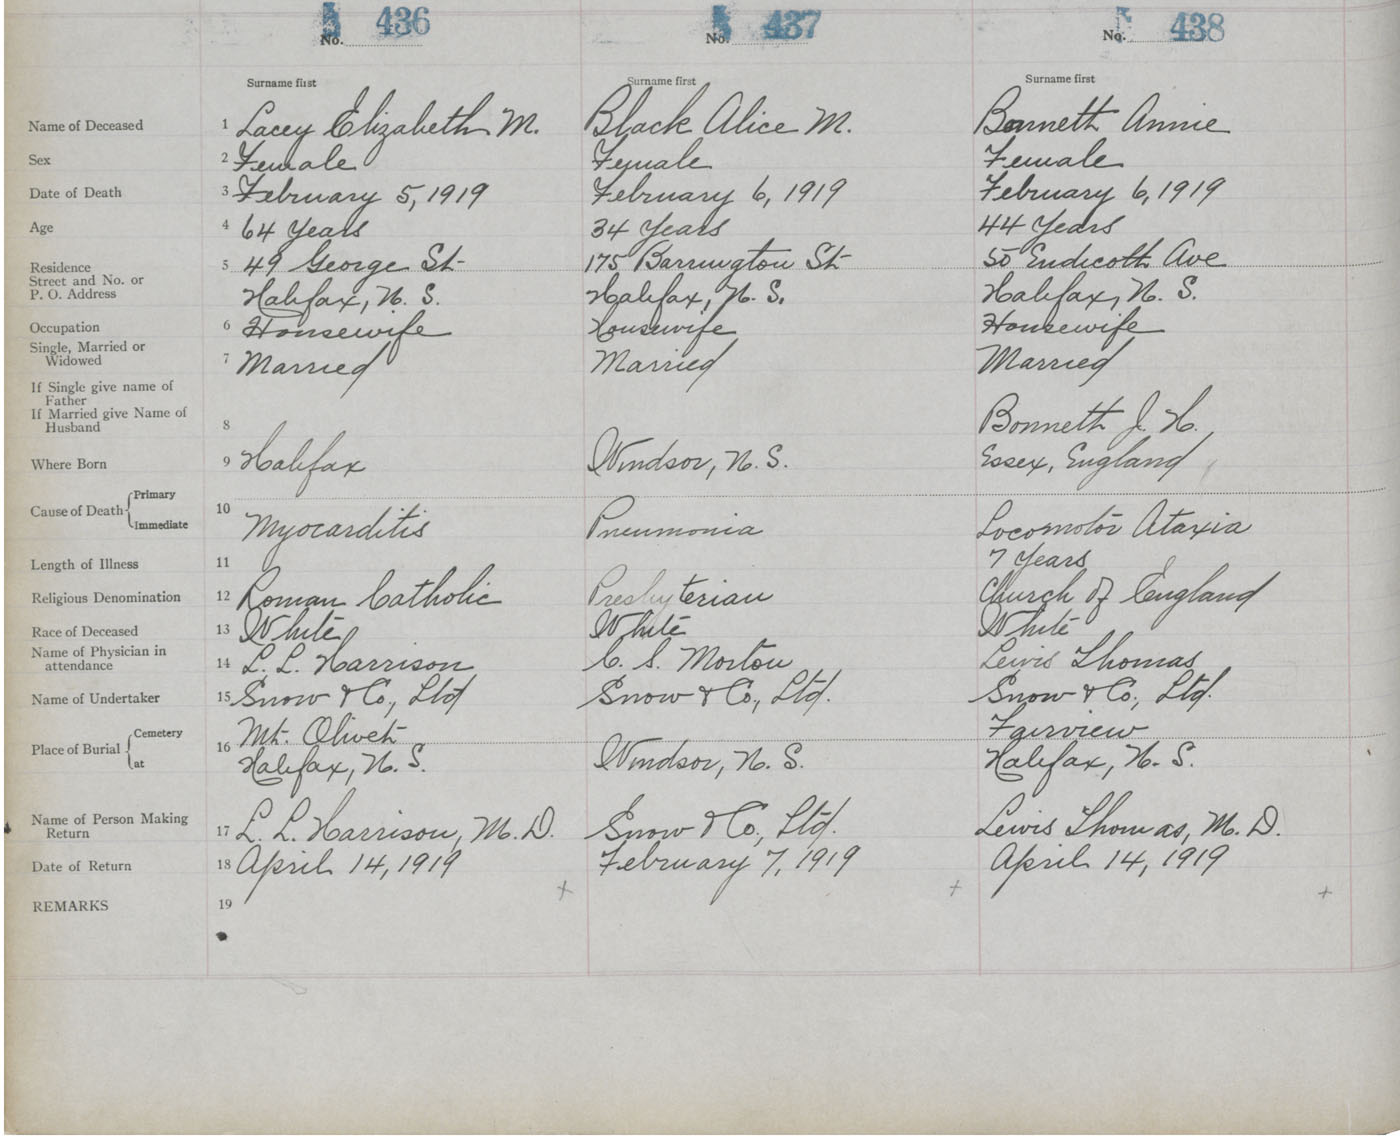 No. 436
No. 437
No. 438
Surname first Surname first Surname first
Name of Deceased 1 Lacey Elizabeth M. Black Alice M. Bonneth Annie
Sex 2 Female Female Female
Date of Death 3 February 5, 1919 February 6, 1919 February 6, 1919
Age 4 64 Years 34 Years 44 Years
Residence Street and No. or P. O. Address 5 49 George St 175 Barrington St 50 Endicoth Ave
Halifax, N. S. Halifax, N. S. Halifax, N. S.
Occupation 6 Housewife Housewife Housewife
Single, Married or Widowed 7 Married Married Married
If Single give name of Father
If Married give Name of Husband 8 Bonneth J. H.
Where Born 9 Halifax Windsor, N. S. Essex, England
Cause of Death Primary Immediate 10 Myocarditis Pneumonia Locomotor Ataxia
Length of Illness 11 7 Years
Religious Denomination 12 Roman Catholic Presbyterian Church of England
Race of Deceased 13 White White White
Name of Physician in attendance 14 L. L. Harrison C. S. Morton Lewis Thomas
Name of Undertaker 15 Snow & Co., Ltd Snow & Co., Ltd. Snow & Co., Ltd.
Place of Burial Cemetery at 16 Mt. Olivet Fairview
Halifax, N. S. Windsor, N. S. Halifax, N. S.
Name of Person Making Return 17 L. L. Harrison, M. D. Snow & Co., Ltd. Lewis Thomas, M. D.
Date of Return 18 April 14, 1919 February 7, 1919 April 14, 1919
REMARKS 19